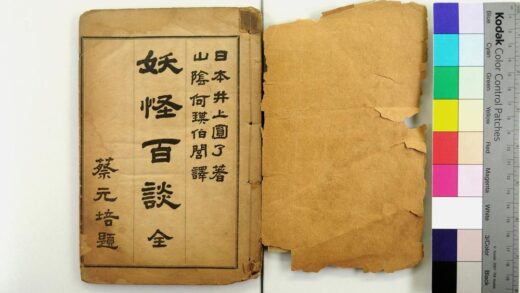 日本井上圓了著
山陰何琪伯閭譯
妖怪百談 全
蔡元培題
Kodak
Color Control Patches
Blue
Cyan
Green
Yellow
Red
Magenta
White
3/Color
Black